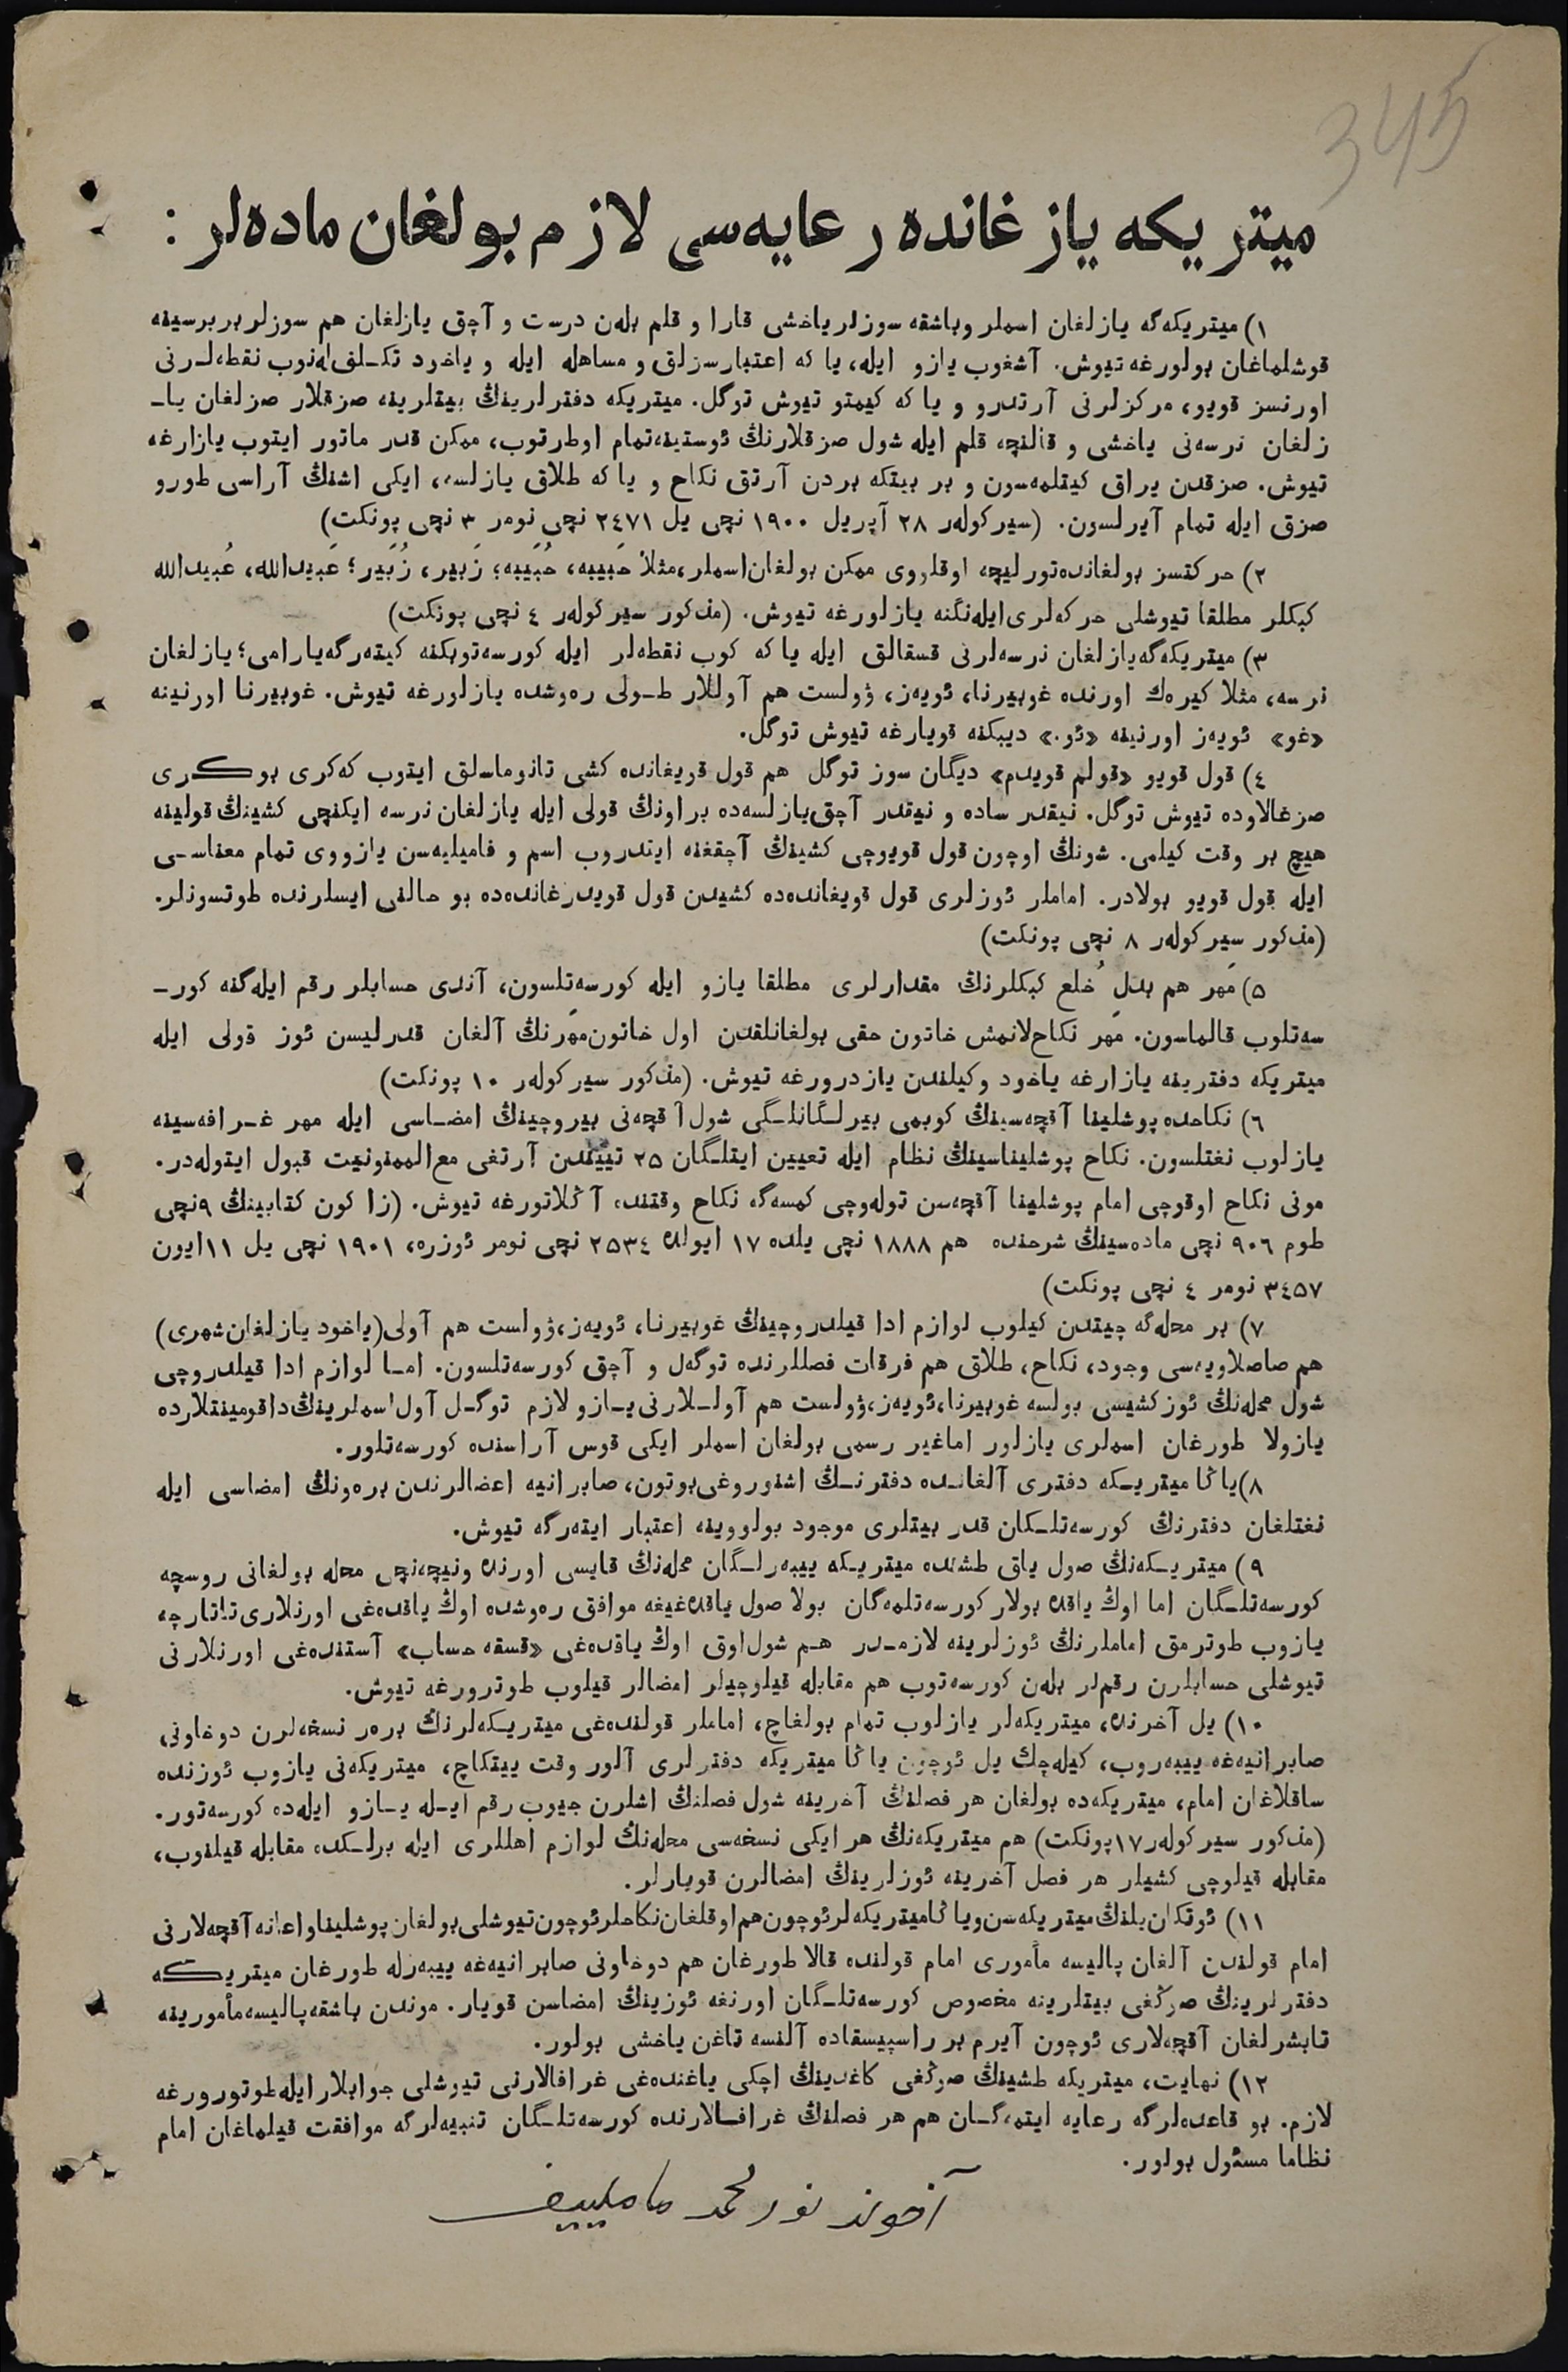 345
ميتريكه يازغانده رعايه‌سى لازم بولغان ماده‌لر :
١) ميتريكه‌گه يازلغان اسملر وباشقه سوزلرياخشى قارا و قلم بله‌ن درست و آچق يازلغان هم سوزلر بربرسينه
قوشلماغان بولورغه تيوش. آشغوب يازو ايله، يا كه اعتبارسزلق و مساهله ايله و ياخود تكـلفله‌نوب نقطه‌لـرنى
اورنسز قويو، مركزلرنى آرتدرو و يا كه كيمتو تيوش توگل. ميتريكه دفترلرينڭ بيتلرينه صزقلار صزلغان يا‍ـ
زلغان نرسه‌نى ياخشى و قالنچه قلم ايله شول صزقلارنڭ ئوستينه‌تمام اوطرتوب، ممكن قدر ماتور ايتوب يازارغه
تيوش. صزقدن يراق كيتلمه‌سون و بر بيتكه بردن آرتق نكاح و يا كه طلاق يازلسه، ايكى اشنڭ آراسى طورو
صزق ايله تمام آيرلسون. (سيركوله‌ر ٢٨ آپريل ١٩٠٠ نچى يل ٢٤٧١ نچى نومر ٣ نچى پونكت)
٢) حركتسز بولغانده‌تورليچه اوقلووى ممكن بولغان اسملر،مثلاً حَبيبه، حُبَيبه؛ زَبير، زُبَير؛ عَبيدالله، عُبيدالله
كبكلر مطلقا تيوشلى حركه‌لرى ايله‌نگنه يازلورغه تيوش. (مذكور سيركوله‌ر ٤ نچى پونكت)
٣) ميتريكه‌گه‌يازلغان نرسه‌لرنى قسقالق ايله يا كه كوب نقطه‌لر ايله كورسه‌توبكنه كيته‌رگه‌يارامى؛ يازلغان
نرسه، مثلا كيره‌ك اورنده غوبيرنا، ئويه‌ز، ۋولست هم آوللار طـولى ره‌وشده يازلورغه تيوش. غوبيرنا اورنينه
«غو» ئويه‌ز اورنينه «ئو.» ديبكنه قويارغه تيوش توگل.
٤) قول قويو «قولم قويدم» ديگان سوز توگل هم قول قويغانده كشى تانوماسلق ايتوب كه‌كرى بوكرى
صزغالاوده تيوش توگل. نيقدر ساده و نيقدر آچق‌يازلسه‌ده براونڭ قولى ايله يازلغان نرسه ايكنچى كشينڭ قولينه
هيچ بر وقت كيلمى. شونڭ اوچون قول قويوچى كشينڭ آچقغنه ايتدروب اسم و فاميليه‌سن يازووى تمام معناسـى
ايله قول قويو بولادر. اماملر ئوزلرى قول قويغانده‌ده كشيدن قول قويدرغانده‌ده بو حالنى ايسلرنده طوتسونلر.
(مذكور سيركوله‌ر ٨ نچى پونكت)
٥) مَهر هم بدلِ خُلع كبكلرنڭ مقدارلرى مطلقا يازو ايله كورسه‌تلسون، آندى حسابلر رقم ايله‌گنه كور‍ـ
سه‌تلوب قالماسون. مَهر نكاح‌لانمش خاتون حقى بولغانلقدن اول خاتون‌مَهرنڭ آلغان قدرليسن ئوز قولى ايله
ميتريكه دفترينه يازارغه ياخود وكيلندن يازدرورغه تيوش. (مذكور سيركوله‌ر ١٠ پونكت)
٦) نكاحده پوشلينا آقچه‌سينڭ كوبمى بيرلـگانلـگى شول آقچه‌نى بيروچينڭ امضـاسى ايله مهر غـرافه‌سينه
يازلوب نغتلسون. نكاح پوشليناسينڭ نظام ايله تعيين ايتلـگان ٢٥ تييندن آرتغى مع‌الممنونيت قبول ايتوله‌در.
مونى نكاح اوقوچى امام پوشلينا آقچه‌سن توله‌وچى كمسه‌گه نكاح وقتنده آڭلاتورغه تيوش. (زاكون كتابينڭ ٩نچى
طوم ٩٠٦ نچى ماده‌سينڭ شرحنده هم ١٨٨٨ نچى يلده ١٧ ايولده ٢٥٣٤ نچى نومر ئوزره، ١٩٠١ نچى يل ١١ايون
٣٤٥٧ نومر ٤ نچى پونكت)
٧) بر محله‌گه چيتدن كيلوب لوازم ادا قيلدروچينڭ غوبيرنا، ئويه‌ز،ۋولست هم آولى(ياخود يازلغان‌شهرى)
هم صاصلاويه‌سى وجود، نكاح، طلاق هم فرقات فصللرنده توگه‌ل و آچق كورسه‌تلسون. امـا لوازم ادا قيلدروچى
شول محله‌نڭ ئوزكشيسى بولسه غوبيرنا،ئويه‌ز،ۋولست هم آولـلارنى يـازو لازم توگـل آول اسملرينڭ‌داقومينتلارده
يازولا طورغان اسملرى يازلور اماغير رسمى بولغان اسملر ايكى قوس آراسنده كورسه‌تلور.
٨)ياڭا ميتريـكه دفترى آلغانـده دفترنـڭ اشنوروغى‌بوتون، صابرانيه اعضالرندن بره‌ونڭ امضاسى ايله
نغتلغان دفترنڭ كورسه‌تلـكان قدر بيتلرى موجود بولووينه اعتبار ايته‌رگه تيوش.
٩) ميتريـكه‌نڭ صول ياق طشنده ميتريـكه ييبه‌رلـگان محله‌نڭ قايسى اورنده ونيچه‌نچى محله بولغانى روسچه
كورسه‌تلـگان اما اوڭ ياقده بولار كورسه‌تلمه‌گان بولا صول ياقده‌غيغه موافق ره‌وشده اوڭ ياقده‌غى اورنلارى‌تاتارچه
يازوب طوترمق اماملرنڭ ئوزلرينه لازمـدر هـم شول‌اوق اوڭ ياقده‌غى «قسقه حساب» آستنده‌غى اورنلارنى
تيوشلى حسابلرن رقم‌لر بله‌ن كورسه‌توب هم مقابله قيلوچيلر امضالر قيلوب طوترورغه تيوش.
١٠) يل آخرنده، ميتريكه‌لر يازلوب تمام بولغاچ، اماملر قولنده‌غى ميتريـكه‌لرنڭ بره‌ر نسخه‌لرن دوخاونى
صابرانيه‌غه ييبه‌روب، كيله‌چك يل ئوچون ياڭا ميتريكه دفترلرى آلور وقت ييتكاچ، ميتريكه‌نى يازوب ئوزنده
ساقلاغان امام، ميتريكه‌ده بولغان هر فصلنڭ آخرينه شول فصلنڭ اشلرن جيوب رقم ايـله يـازو ايله‌ده كورسه‌تور.
(مذكور سيركوله‌ر ١٧پونكت) هم ميتريكه‌نڭ هر ايكى نسخه‌سى محله‌نڭ لوازم اهللرى ايله برلـكده مقابله قيلنوب،
مقابله قيلوچى كشيلر هر فصل آخرينه ئوزلرينڭ امضالرن قويارلر.
١١) ئوتكان‌يلنڭ ميتريكه‌سن‌وياڭاميتريكه‌لرئوچون‌هم‌اوقلغان‌نكاحلرئوچون‌تيوشلى‌بولغان‌پوشليناواعانه‌آقچه‌لارنى
امام قولندن آلغان پاليسه مأمورى امام قولنده قالا طورغان هم دوخاونى صابرانيه‌غه ييبه‌رله طورغان ميتريكه
دفترلرينڭ صوڭغى بيتلرينه مخصوص كورسه‌تلـگان اورنغه ئوزينڭ امضاسن قويار. موندن باشقه‌پاليسه‌مأمورينه
تابشرلغان آقچه‌لارى ئوچون آيرم بر راسپيسقاده آلنسه تاغن ياخشى بولور.
١٢) نهايت، ميتريكه طشينڭ صوڭغى كاغدينڭ اچكى ياغنده‌غى غرافالارنى تيوشلى جوابلار ايله طوتورورغه
لازم. بو قاعده‌لرگه رعايه ايتمه‌گـان هم هر فصلنڭ غرافـالارنده كورسه‌تلـگان تنبيه‌لرگه موافقت قيلماغان امام
نظاما مسئول بولور.
آخوند نورمحمد مامليييف